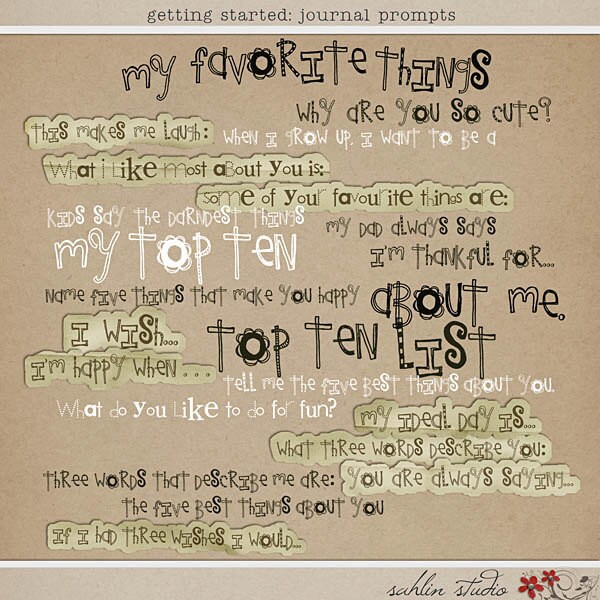 getting started: journal prompts
my favorite things
why are you so cute?
this makes me laugh:
when i grow up, i want to be a
what i like most about you is:
some of your favourite things are:
kids say the darndest things
my dad always says
my top ten
i'm thankful for...
name five things that make you happy
about me.
i wish...
top ten list
i'm happy when . . . .
tell me the five best things about you.
what do you like to do for fun?
my ideal day is...
what three words describe you:
three words that describe me are:
you are always saying...
the five best things about you
if i had three wishes i would...
sahlin studio